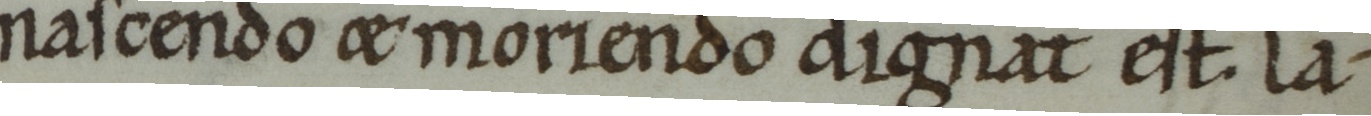 nascendo & moriendo dignat est. la-